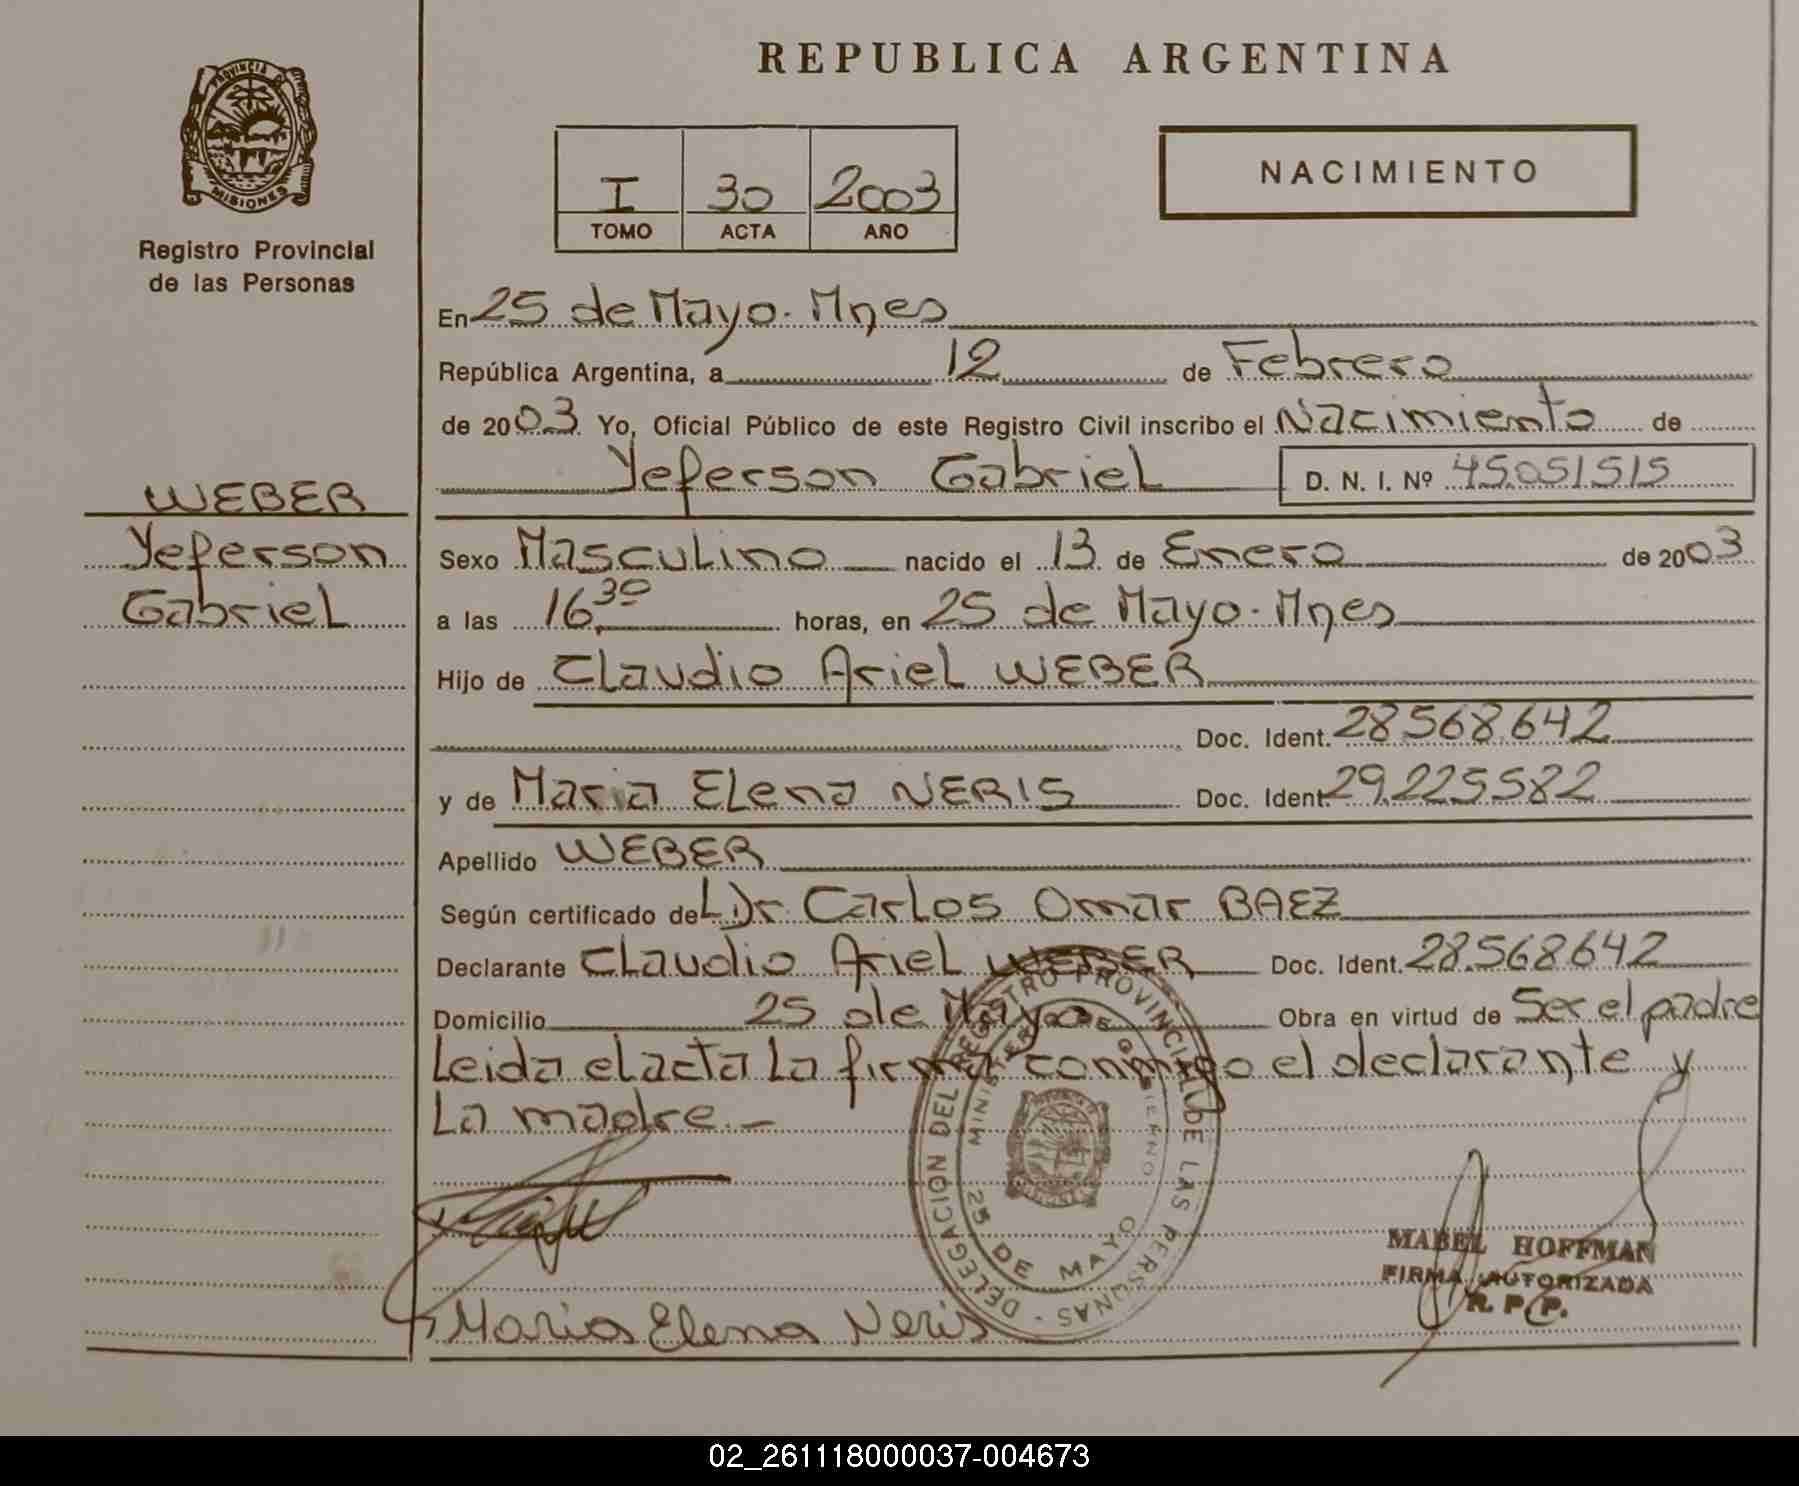 REPUBLICA ARGENTINA
PROVINCIA DE
MISIONES
Registro Provincial
de las Personas
I 30 2003
TOMO ACTA AÑO
NACIMIENTO
En 25 de Mayo. Mnes
República Argentina, a 12 de Febrero
de 2003 Yo, Oficial Público de este Registro Civil inscribo el Nacimiento de
Yeferson Gabriel D. N. I. Nº 45.051515
WEBER
Yeferson
Gabriel
Sexo Masculino nacido el 13 de Enero de 2003
a las 16,30 horas, en 25 de Mayo. Mnes
Hijo de Claudio Ariel WEBER
Doc. Ident. 28.568.642
y de Maria Elena NERIS Doc. Ident. 29.225582
Apellido WEBER
Según certificado de Dr. Carlos Omar BAEZ
Declarante Claudio Ariel WEBER Doc. Ident. 28.568642
Domicilio 25 de Mayo Obra en virtud de Ser el padre
Leida el acta La firma conmigo el declarante y
La madre.-
DELEGACION DEL REGISTRO PROVINCIAL DE LAS PERSONAS
MINISTERIO DE GOBIERNO
25 DE MAYO
MABEL HOFFMAN
FIRMA AUTORIZADA
R. P. P.
Maria Elena Neris
02_261118000037-004673